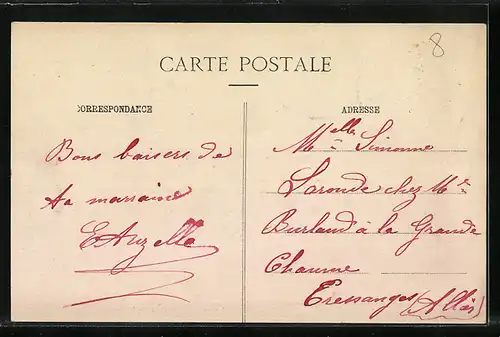 8
CARTE POSTALE
CORRESPONDANCE
Bons baisers de
ta marraine
ADRESSE
Melle Simonne
Laronde chez Mr
Burland à la Grande
Chaume
Tressanges (Allier)